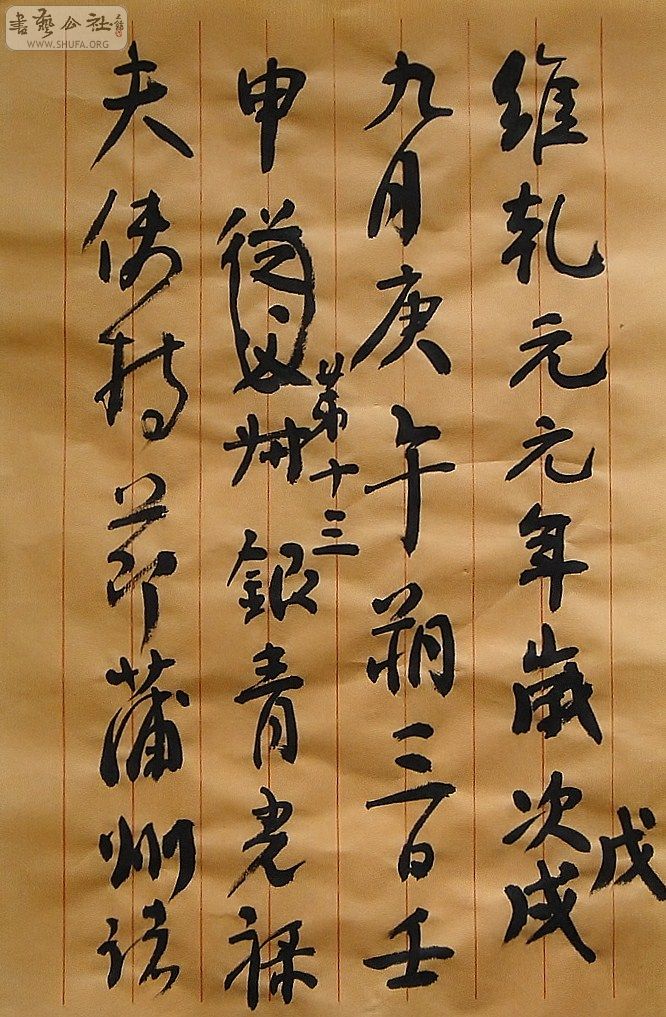 書藝公社
WWW.SHUFA.ORG
維乾元元年歲次戊戌
九月庚午朔三日壬
第十三
申從父叔銀青光祿
夫使持節蒲州諸